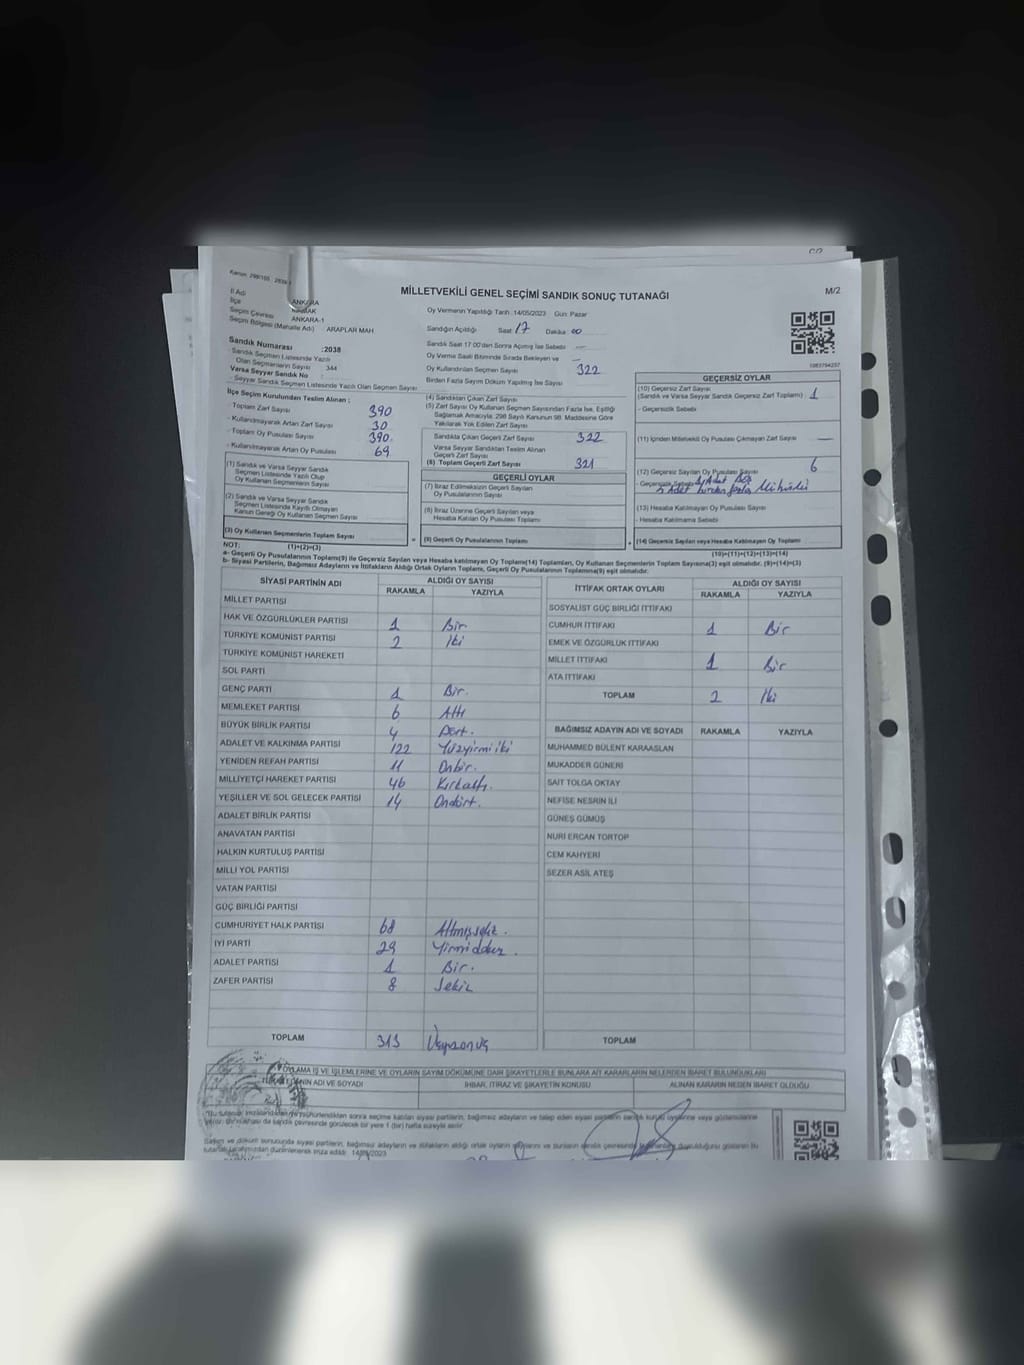 Kanun: 298/105 , 2839
M/2
MİLLETVEKİLİ GENEL SEÇİMİ SANDIK SONUÇ TUTANAĞI
İl Adı ANKARA
İlçe
Seçim Çevresi ANKARA-1
Seçim Bölgesi (Mahalle Adı) ARAPLAR MAH
Sandık Numarası :2038
Sandık Seçmen Listesinde Yazılı
Olan Seçmenlerin Sayısı 344
Varsa Seyyar Sandık No
- Seyyar Sandık Seçmen Listesinde Yazılı Olan Seçmen Sayısı
İlçe Seçim Kurulundan Teslim Alınan :
- Toplam Zarf Sayısı 390
- Kullanılmayarak Artan Zarf Sayısı 30
- Toplam Oy Pusulası Sayısı 390
- Kullanılmayarak Artan Oy Pusulası 69
(1) Sandık ve Varsa Seyyar Sandık
Seçmen Listesinde Yazılı Olup
Oy Kullanan Seçmen Sayısı
(2) Sandık ve Varsa Seyyar Sandık
Seçmen Listesinde Kayıtlı Olmayan
Kanun Gereği Oy Kullanan Seçmen Sayısı
(3) Oy Kullanan Seçmenlerin Toplam Sayısı
(1)+(2)=(3)
Oy Vermenin Yapıldığı Tarih :14/05/2023 Gün: Pazar
Sandığın Açıldığı Saat 17 Dakika 00
Sandık Saat 17:00'den Sonra Açılmış İse Sebebi —
Oy Verme Saati Bitiminde Sırada Bekleyen ve —
Oy Kullandırılan Seçmen Sayısı 322
Birden Fazla Sayım Döküm Yapılmış İse Sayısı
(4) Sandıktan Çıkan Zarf Sayısı
(5) Zarf Sayısı Oy Kullanan Seçmen Sayısından Fazla İse, Eşitliği
Sağlamak Amacıyla; 298 Sayılı Kanunun 98. Maddesine Göre
Yakılarak Yok Edilen Zarf Sayısı
Sandıkta Çıkan Geçerli Zarf Sayısı 322
Varsa Seyyar Sandıktan Teslim Alınan
Geçerli Zarf Sayısı
(6) Toplam Geçerli Zarf Sayısı 321
GEÇERLİ OYLAR
(7) İtiraz Edilmeksizin Geçerli Sayılan
Oy Pusulalarının Sayısı
(8) İtiraz Üzerine Geçerli Sayılan veya
Hesaba Katılan Oy Pusulası Toplamı
(9) Geçerli Oy Pusulalarının Toplamı
1083794237
GEÇERSİZ OYLAR
(10) Geçersiz Zarf Sayısı
(Sandık ve Varsa Seyyar Sandık Geçersiz Zarf Toplamı) 1
- Geçersizlik Sebebi
(11) İçinden Milletvekili Oy Pusulası Çıkmayan Zarf Sayısı —
(12) Geçersiz Sayılan Oy Pusulası Sayısı 6
- Geçersizlik Sebebi 1 Adet Boş
5 Adet birden fazla Mühürlü
(13) Hesaba Katılmayan Oy Pusulası Sayısı
- Hesaba Katılmama Sebebi
(14) Geçersiz Sayılan veya Hesaba Katılmayan Oy Toplamı
(10)+(11)+(12)+(13)=(14)
NOT:
a- Geçerli Oy Pusulalarının Toplamı(9) ile Geçersiz Sayılan veya Hesaba katılmayan Oy Toplamı(14) Toplamları, Oy Kullanan Seçmenlerin Toplam Sayısına(3) eşit olmalıdır. (9)+(14)=(3)
b- Siyasi Partilerin, Bağımsız Adayların ve İttifakların Aldığı Ortak Oyların Toplamı, Geçerli Oy Pusulalarının Toplamına(9) eşit olmalıdır.
SİYASİ PARTİNİN ADI ALDIĞI OY SAYISI
RAKAMLA YAZIYLA
MİLLET PARTİSİ
HAK VE ÖZGÜRLÜKLER PARTİSİ 1 Bir
TÜRKİYE KOMÜNİST PARTİSİ 2 İki
TÜRKİYE KOMÜNİST HAREKETİ
SOL PARTİ
GENÇ PARTİ 1 Bir.
MEMLEKET PARTİSİ 6 Altı
BÜYÜK BİRLİK PARTİSİ 4 Dört.
ADALET VE KALKINMA PARTİSİ 122 Yüzyirmi iki
YENİDEN REFAH PARTİSİ 11 Onbir.
MİLLİYETÇİ HAREKET PARTİSİ 46 Kırkaltı.
YEŞİLLER VE SOL GELECEK PARTİSİ 14 Ondört.
ADALET BİRLİK PARTİSİ
ANAVATAN PARTİSİ
HALKIN KURTULUŞ PARTİSİ
MİLLİ YOL PARTİSİ
VATAN PARTİSİ
GÜÇ BİRLİĞİ PARTİSİ
CUMHURİYET HALK PARTİSİ 68 Altmışsekiz.
İYİ PARTİ 29 Yirmidokuz.
ADALET PARTİSİ 1 Bir.
ZAFER PARTİSİ 8 Sekiz
TOPLAM 313 Üçyüzonüç
İTTİFAK ORTAK OYLARI ALDIĞI OY SAYISI
RAKAMLA YAZIYLA
SOSYALİST GÜÇ BİRLİĞİ İTTİFAKI
CUMHUR İTTİFAKI 1 Bir
EMEK VE ÖZGÜRLÜK İTTİFAKI
MİLLET İTTİFAKI 1 Bir
ATA İTTİFAKI
TOPLAM 2 İki
BAĞIMSIZ ADAYIN ADI VE SOYADI RAKAMLA YAZIYLA
MUHAMMED BÜLENT KARAASLAN
MUKADDER GÜNERİ
SAİT TOLGA OKTAY
NEFİSE NESRİN İLİ
GÜNEŞ GÜMÜŞ
NURİ ERCAN TORTOP
CEM KAHYERİ
SEZER ASİL ATEŞ
TOPLAM
OYLAMA İŞ VE İŞLEMLERİNE VE OYLARIN SAYIM DÖKÜMÜNE DAİR ŞİKAYETLERLE BUNLARA AİT KARARLARIN NELERDEN İBARET BULUNDUKLARI
ADI VE SOYADI İHBAR, İTİRAZ VE ŞİKAYETİN KONUSU ALINAN KARARIN NEDEN İBARET OLDUĞU
sonra seçime katılan siyasi partilerin, bağımsız adayların ve talep eden siyasi partilerin sandık kurulu üyelerine veya gözlemcilerine
sandık çevresinde görülecek bir yere 1 (bir) hafta süreyle asılır
Sayım ve döküm sonucunda siyasi partilerin, bağımsız adayların ve ittifakların aldığı ortak oyların
tutanak tarafımızdan düzenlenerek imza edildi. 14/05/2023